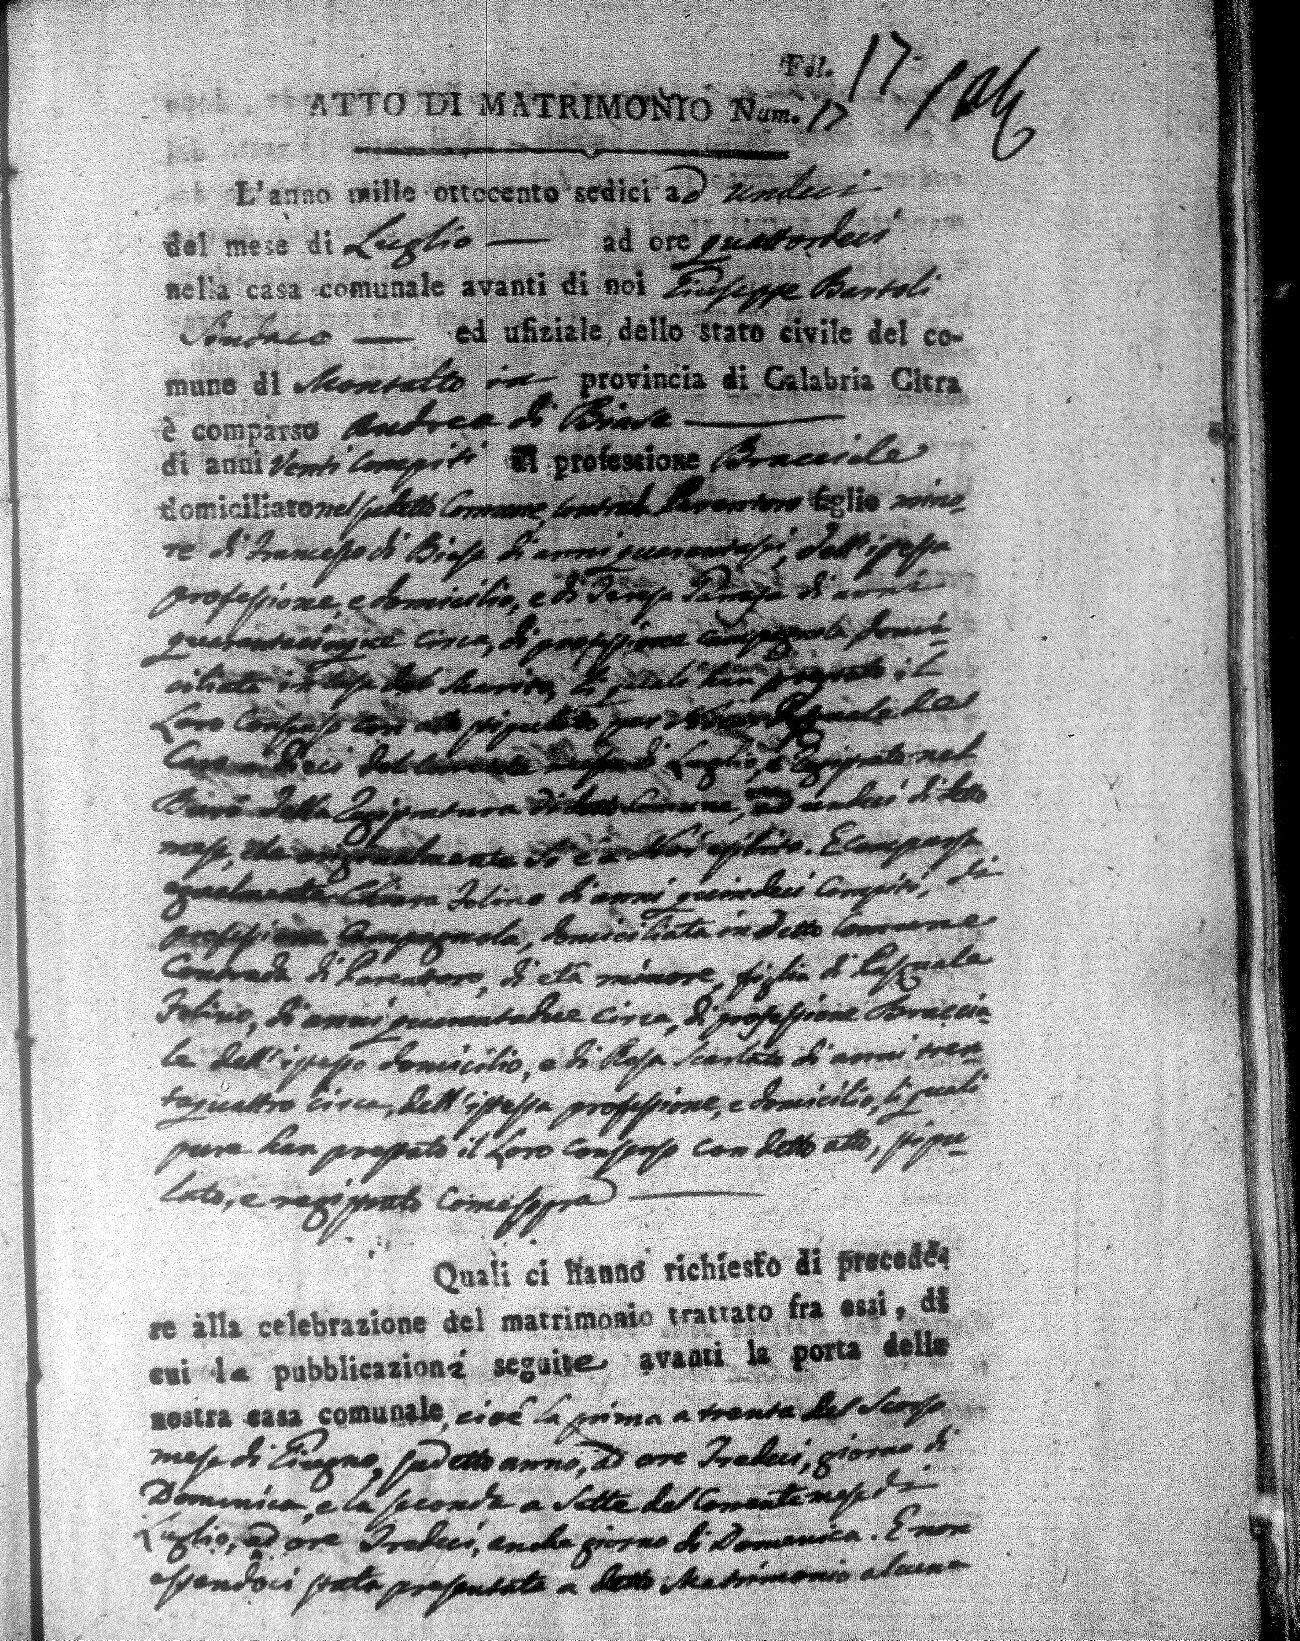 Fol. 17
ATTO DI MATRIMONIO Num. 17
L'anno mille ottocento sedici ad undeci
del mese di Luglio — ad ore quattordeci
nella casa comunale avanti di noi Giuseppe Bartoli
Sindaco — ed ufiziale dello stato civile del co-
mune di Montalto in provincia di Calabria Citra
è comparso Andrea di Biase —
di anni Venti compiti di professione Bracciale
domiciliato nel sudetto Comune, contrada Parantoro figlio mino-
re di Francesco di Biase di anni quarantasei, dell'istessa
professione, e domicilio, e di Teresa di anni
quarantacinque circa, di professione campagnola domi-
ciliata del Marito, li quali han prestato il
Loro Consenso con atto stipulato per
dieci del corrente mese di Luglio, e registrato nel
della Registratura di detto Comune, ad undeci di detto
mese, che originalmente si è a Noi esibito. E comparsa
egualmente Chiara Folino di anni quindeci compiti, di
professione Campagnola, domiciliata in detto Comune
Contrada di Parantoro, di età minore, figlia di Pasquale
Folino, di anni quarantadue circa, di professione Braccia-
le dell'istesso domicilio, e di Rosa Scarlato di anni tren-
taquattro circa, dell'istessa professione, e domicilio, li quali
pure han prestato il Loro consenso con detto atto, stipu-
lato, e registrato come sopra —
Quali ci hanno richiesto di procede-
re alla celebrazione del matrimonio trattato fra essi, di
cui le pubblicazioni seguite avanti la porta della
nostra casa comunale, cioè la prima a trenta del Scorso
mese di Giugno, sudetto anno, ad ore Tredeci, giorno di
Domenica, e la seconda a Sette del Corrente mese di
Luglio, ad ore Tredeci, anche giorno di Domenica. E non
essendoci stata presentata a detto Matrimonio alcuna